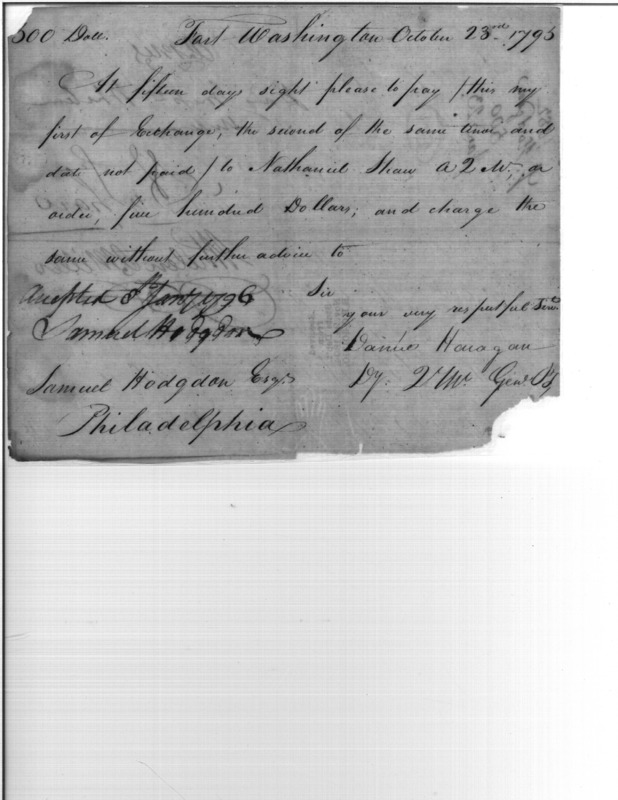 500 Doll. Fort Washington October 23rd 1795
At fifteen days sight please to pay / this my
first of Exchange, the second of the same tenor and
date not paid / to Nathaniel Shaw A Q M, or
order, five hundred Dollars; and charge the
same without further advice to
Sir
your very respectful Servt
Accepted 8th Jany 1796
Samuel Hodgdon
Daniel
Samuel Hodgdon Esqr. Dy. Q Mr Genl
Philadelphia